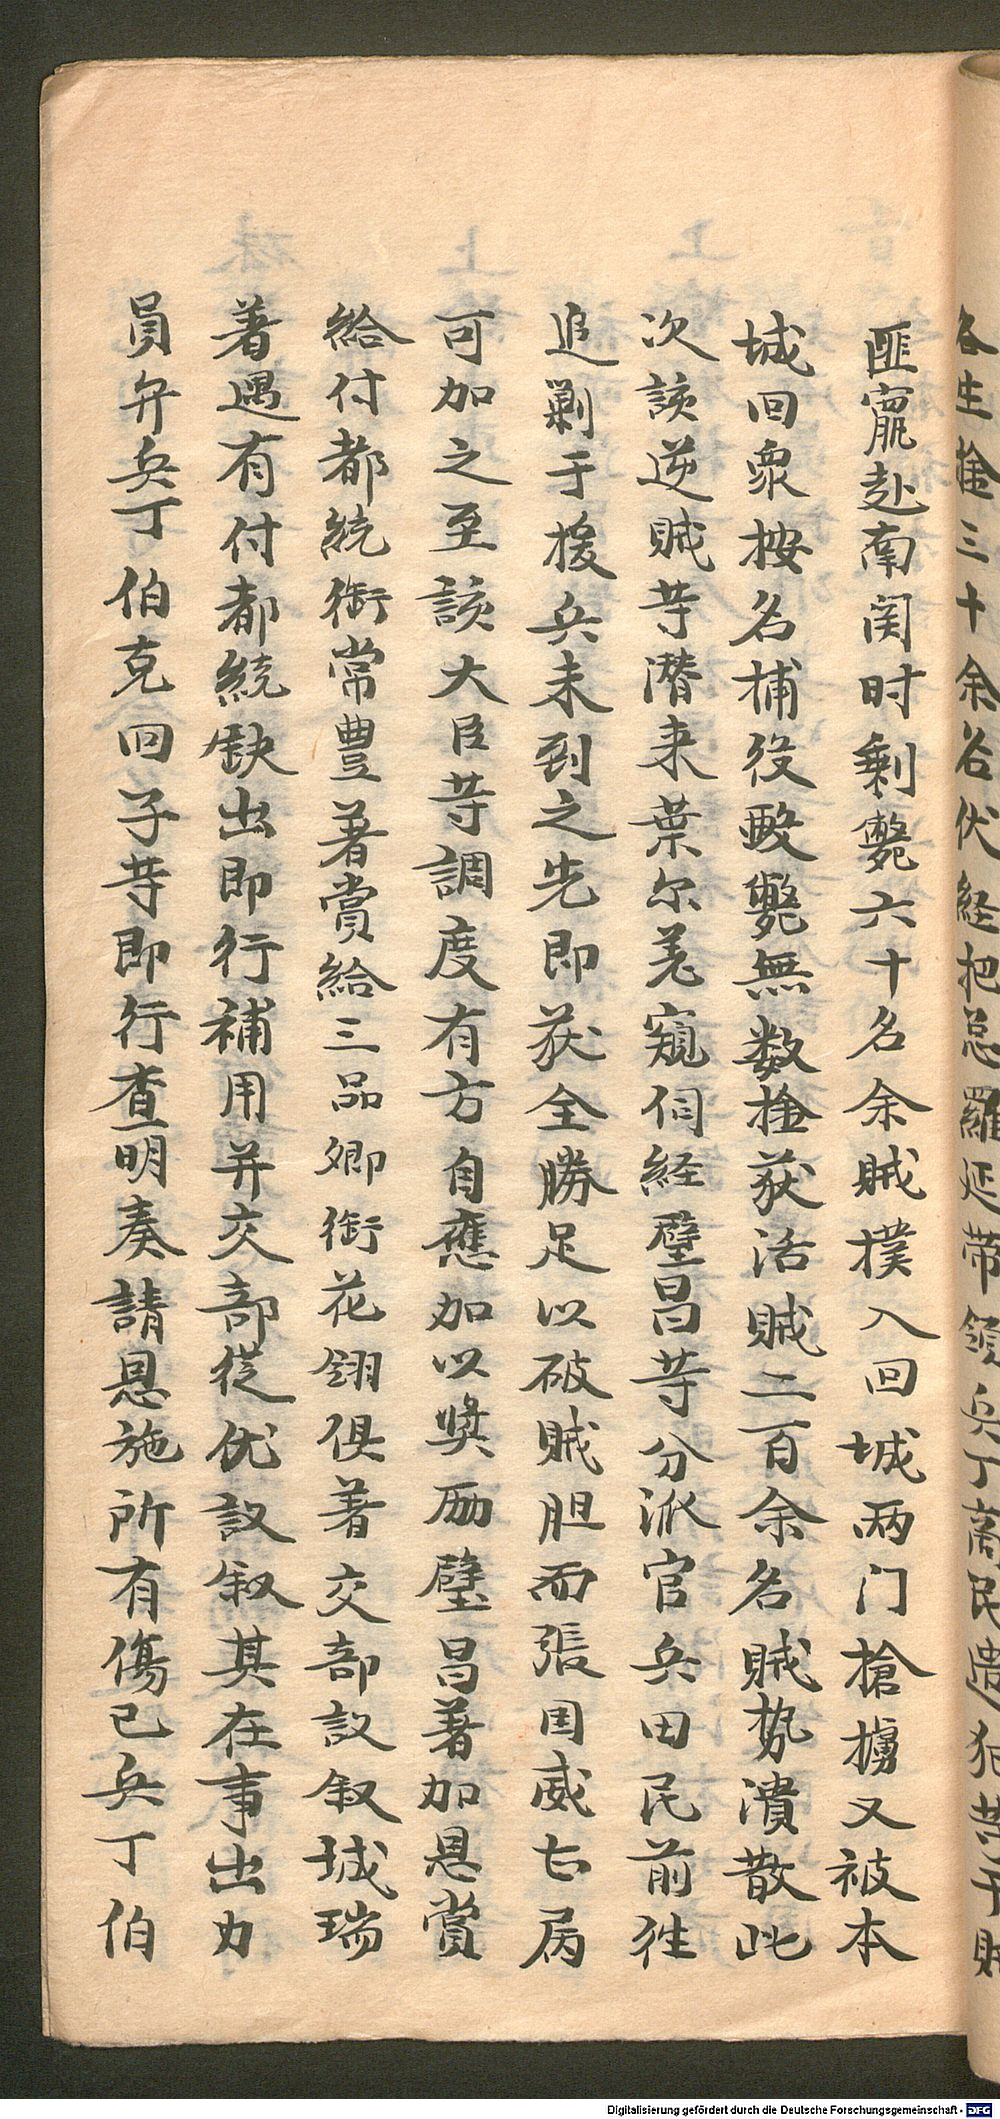 各生擒三十余名伏経把总羅延带領兵丁商民遗犯等于贼
匪竄赴南関时剩斃六十名余贼撲入回城两门搶擄又被本
城回衆按名捕役毆斃無数擒获活贼二百余名贼势潰散此
次該逆贼等潜来葉尔羌窺伺経璧昌等分派官兵田民前往
追剿于援兵未到之先即获全勝足以破贼胆而張国威
可加之至該大臣等調度有方自應加以奨励璧昌著加恩賞
給付都統銜常豊著賞給三品卿銜花翎俱著交部议叙瑊瑞
著遇有付都統缺出即行補用并交部從优议叙其在事出力
員弁兵丁伯克回子等即行查明奏請恩施所有傷已兵丁伯
Digitalisierung gefördert durch die Deutsche Forschungsgemeinschaft - DFG